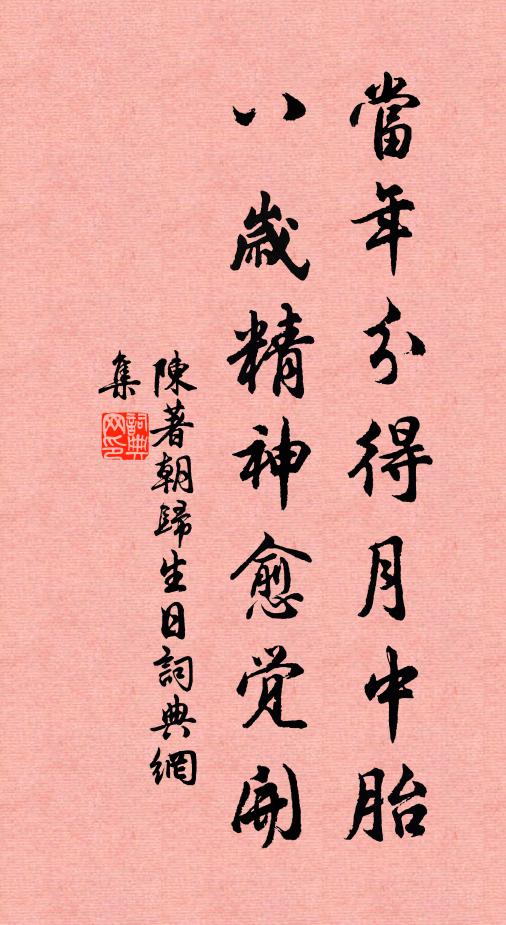 當年分得月中胎
八歲精神愈覺開
陳著朝歸生日詞典網
集
詞典
网印